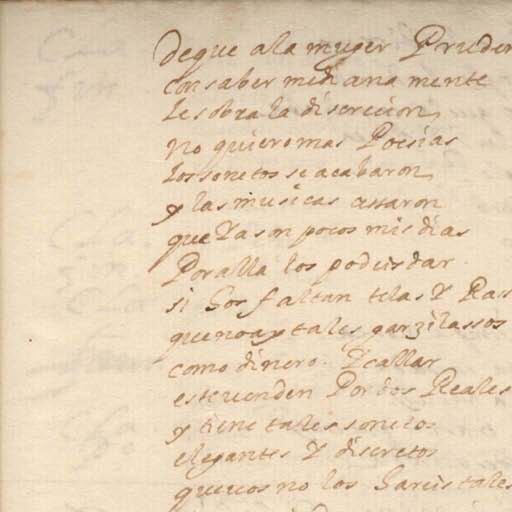 de que a la muger Pruden
con saber mediana mente
le sobra la discrecion,
no quiero mas Poesias
los sonetos se acabaron,
y las musicas cesaron
que Ya son pocos mis dias
Por alla los podeis dar
si hos faltan telas Y Ras
que no ay tales garzilassos
como dinero Y callar
este venden Por dos Reales
y tiene tales sonetos
elegantes Y discretos
que vos no los hareis tales